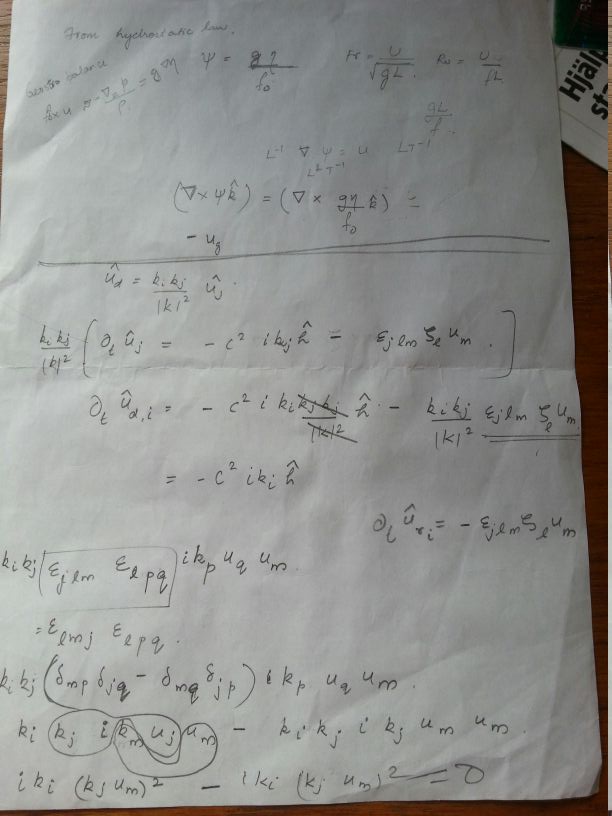 From hydrostatic law.
Hjälp
sta
balance
f₀ × u = - ∇p/ρ = g∇η
ψ = gη/f₀
Fr = U/√gL
Ro = U/fL
gL/f.
L⁻¹ ∇ ψ = u LT⁻¹
L²T⁻¹
(∇× ψk̂) = (∇ × gη/f₀ k̂) =
- u_g
û_d = k_i k_j/|k|² û_j
k_i k_j/|k|² [ ∂_t û_j = - c² i k_j ĥ - ε_jlm ζ_l u_m . ]
∂_t û_d,i = - c² i k_i k_j k_j/|k|² ĥ - k_i k_j/|k|² ε_jlm ζ_l u_m
= - c² i k_i ĥ
∂_t û_r_i = - ε_jlm ζ_l u_m
k_i k_j ε_jlm ε_lpq i k_p u_q u_m.
= ε_lmj ε_lpq.
k_i k_j (δ_mp δ_jq - δ_mq δ_jp) i k_p u_q u_m.
k_i k_j i k_m u_j u_m - k_i k_j i k_j u_m u_m.
i k_i (k_j u_m)² - i k_i (k_j u_m)² = 0